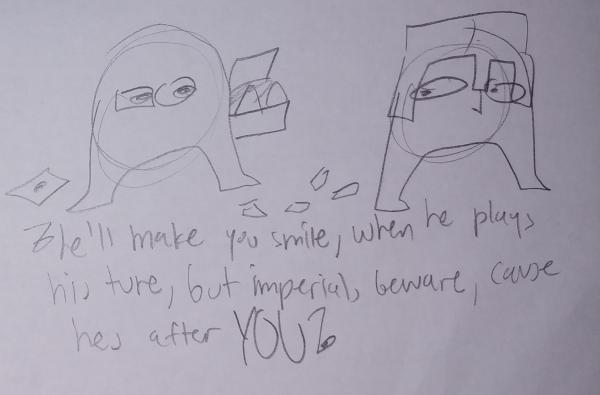 ♪he'll make you smile, when he plays
his ture, but imperials beware, cause
hes after YOU♪